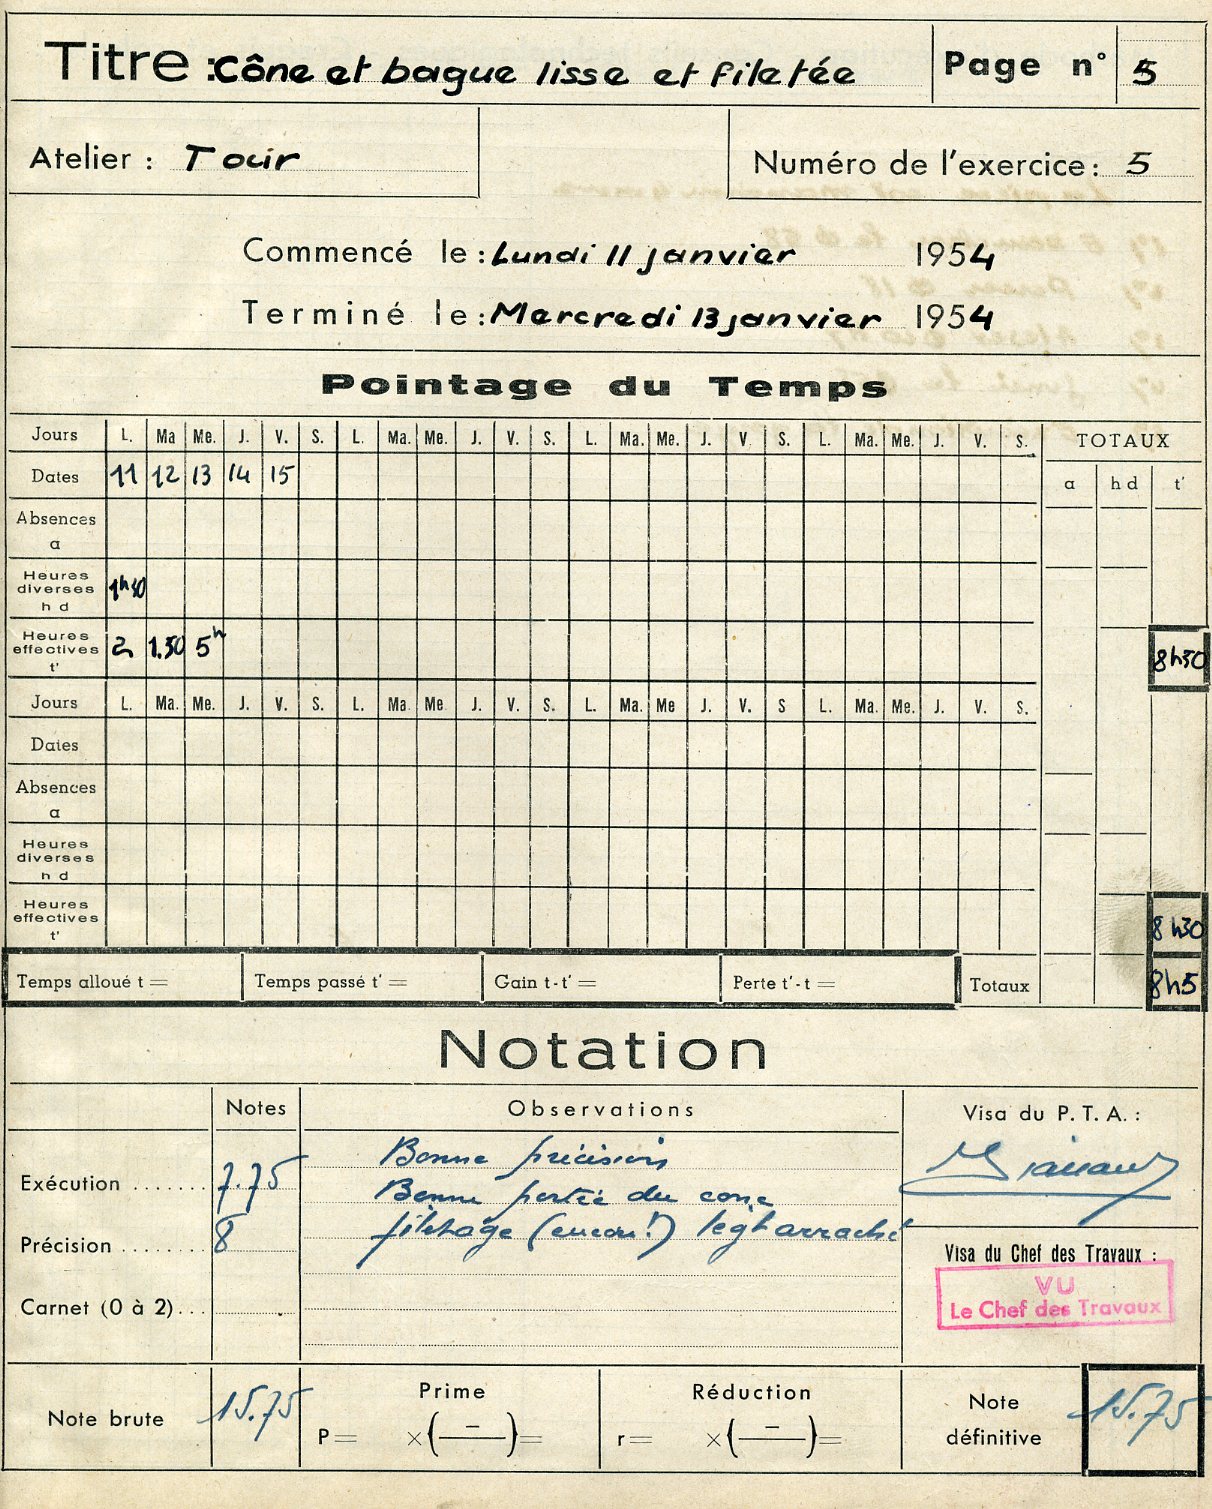 Titre : Cône et bague lisse et filetée Page n° 5
Atelier : Tour Numéro de l'exercice : 5
Commencé le : Lundi 11 janvier 1954
Terminé le : Mercredi 13 janvier 1954
Pointage du Temps
Jours L. Ma Me. J. V. S. L. Ma. Me. J. V. S. L. Ma. Me. J. V S. L. Ma. Me. J. V. S. TOTAUX
Dates 11 12 13 14 15 a h d t'
Absences
a
Heures
diverses 1h30
h d
Heures
effectives 2 1.30 5h 8h30
t'
Jours L. Ma. Me. J. V. S. L. Ma Me J. V. S. L. Ma. Me J. V. S L. Ma. Me. J. V. S.
Dates
Absences
a
Heures
diverses
h d
Heures
effectives 8h30
t'
Temps alloué t = Temps passé t' = Gain t-t' = Perte t'-t = Totaux 8h5
Notation
Notes Observations Visa du P. T. A. :
Exécution ....... 7.75 Bonne précision
Bonne portée du cone
Précision ........ 8 filetage (encore !) legt arraché
Visa du Chef des Travaux :
VU
Le Chef des Travaux
Carnet (0 à 2)...
Note brute 15.75 Prime Réduction Note 15.75
P = × (—) = r = × (—) = définitive